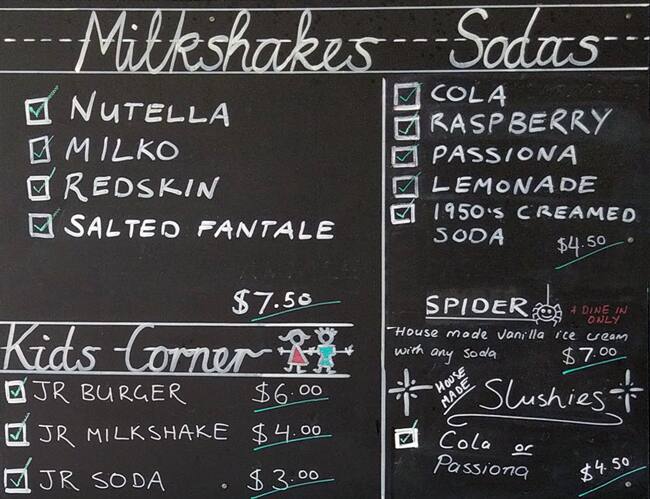 Milkshakes
NUTELLA
MILKO
REDSKIN
SALTED FANTALE
$7.50
Kids Corner
JR BURGER $6.00
JR MILKSHAKE $4.00
JR SODA $3.00
Sodas
COLA
RASPBERRY
PASSIONA
LEMONADE
1950's CREAMED
SODA $4.50
SPIDER
* DINE IN
ONLY
House made vanilla ice cream
with any soda $7.00
HOUSE
MADE
Slushies
Cola or
Passiona $4.50